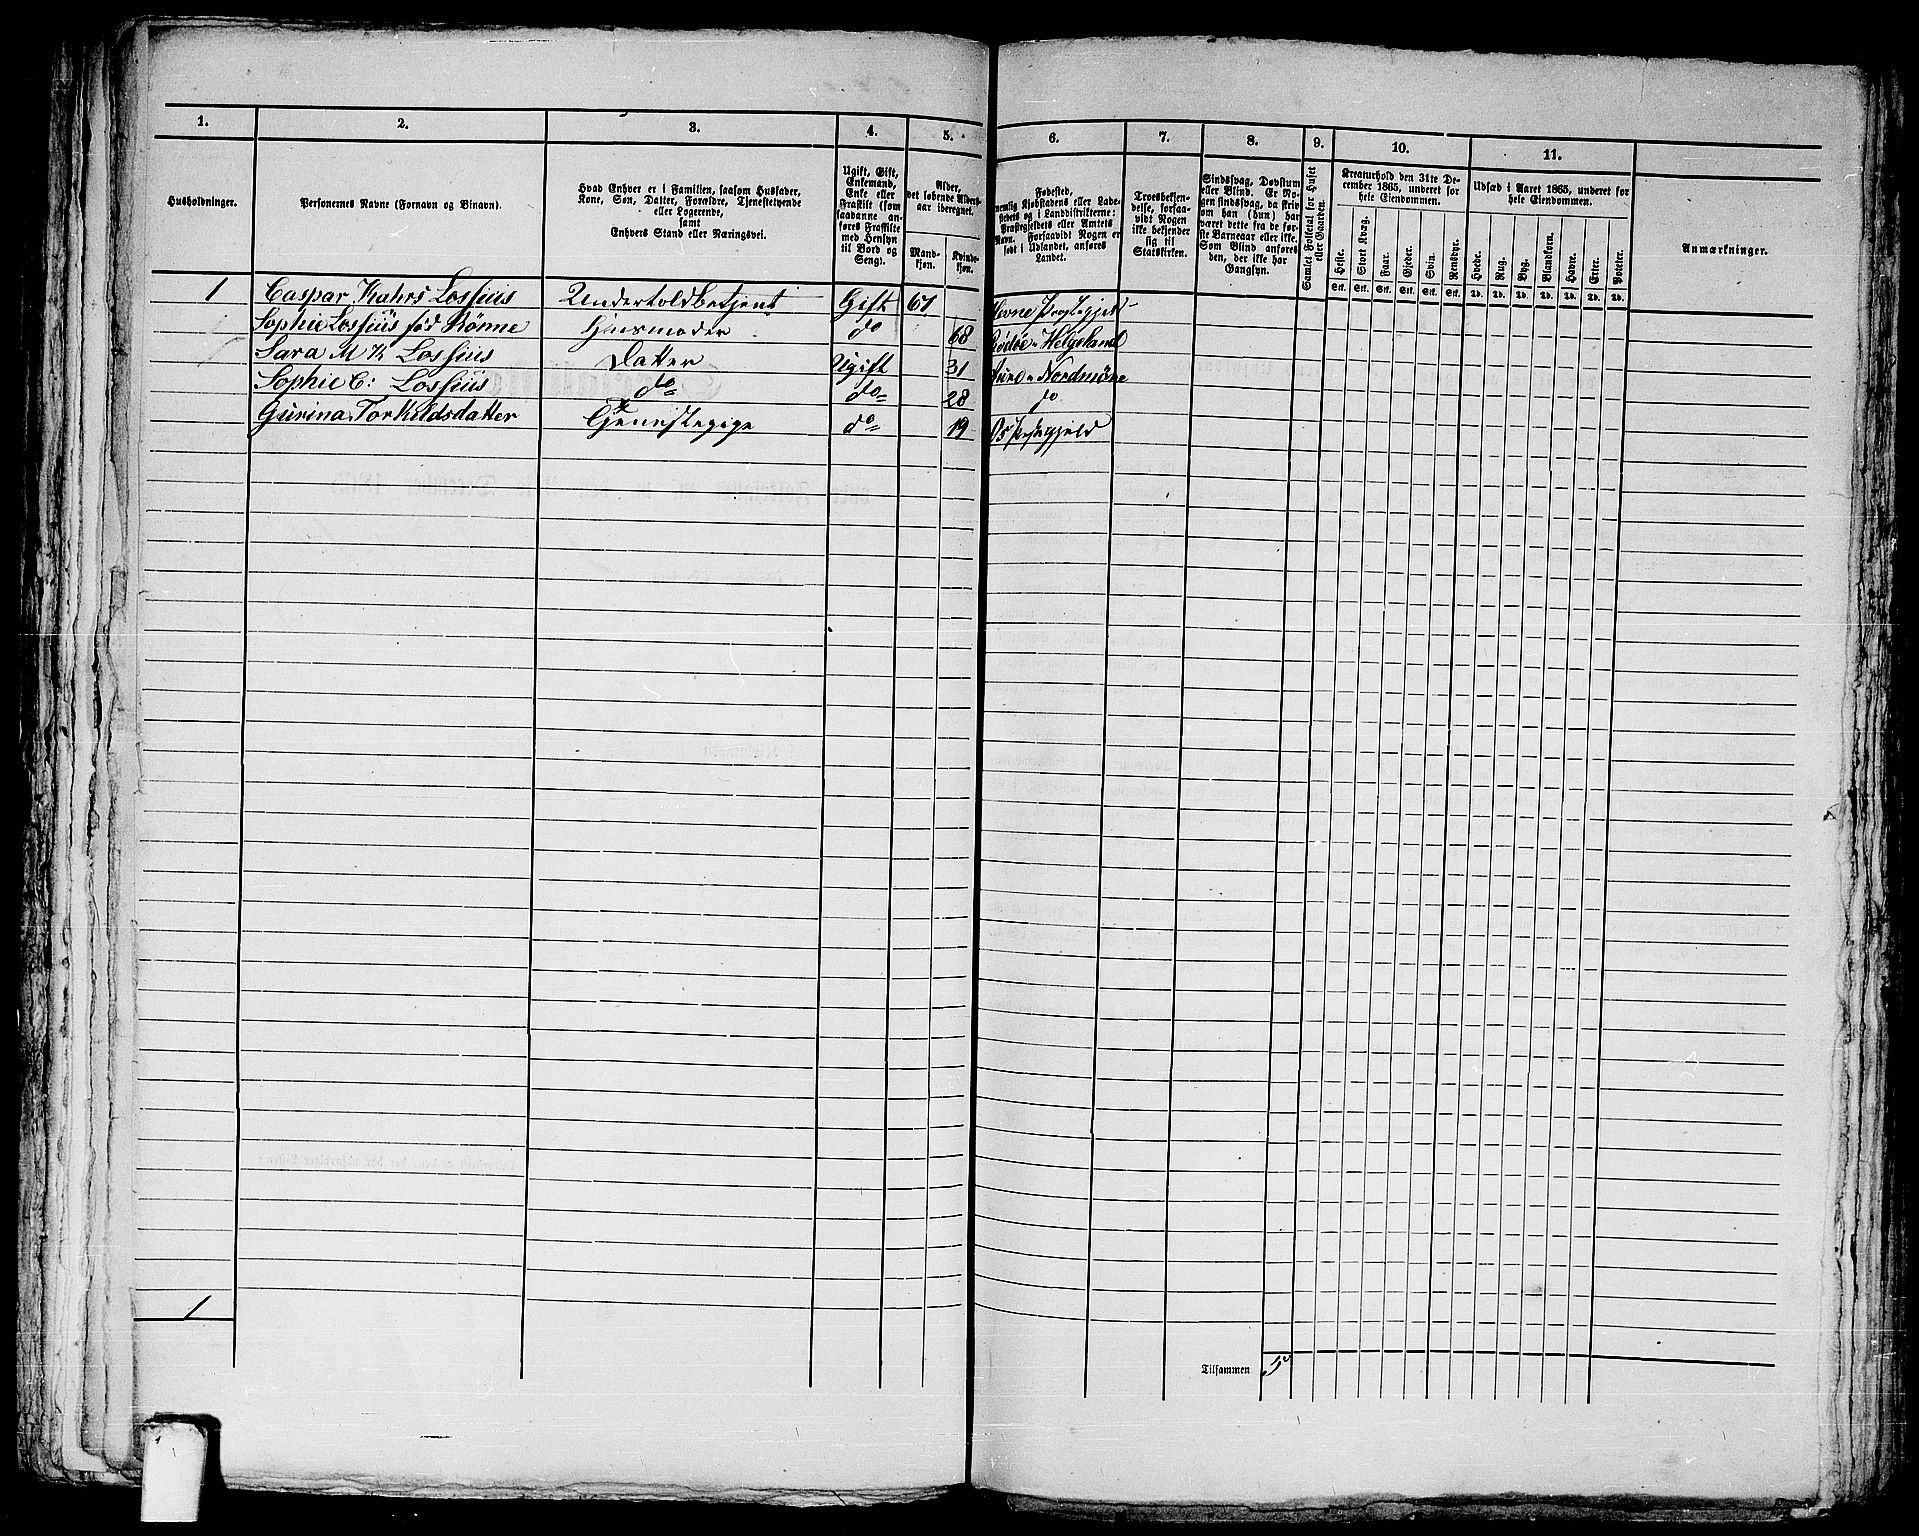 1. 2. 3. 4. 5. 6. 7. 8. 9. 10. 11.
Husholdninger.
Personernes Navne (Fornavn og Binavn).
Hvad Enhver er i Familien, saasom Husfader,
Kone, Søn, Datter, Forældre, Tjenestetyende
eller Logerende,
samt
Enhvers Stand eller Næringsvei.
Ugift, Gift,
Enkemand,
Enke eller
Fraskilt (som
saadanne an-
føres Fraskilte
med Hensyn
til Bord og
Seng).
Alder,
det løbende Alders-
aar iberegnet.
Mand-
kjøn.
Kvinde-
kjøn.
Fødested,
nemlig Kjøbstadens eller Lade-
stedets og i Landdistrikterne:
Præstegjeldets eller Amtets
Navn. Forsaavidt Nogen er
født i Udlandet, anføres
Landet.
Troesbekjen-
delse, forsaa-
vidt Nogen
ikke bekjender
sig til
Statskirken.
Sindssvag, Døvstum
eller Blind. Er No-
gen sindssvag, da skriv
om han (hun) har
været dette fra de før-
ste Barneaar eller ikke.
Som Blind anføres
den, der ikke har
Gangsyn.
Samlet Folketal for Huset
eller Gaarden.
Kreaturhold den 31te De-
cember 1865, underet for
hele Eiendommen.
Heste. Stort Kvæg. Faar. Gjeder. Svin. Rensdyr.
Stk. Stk. Stk. Stk. Stk. Stk.
Udsæd i Aaret 1865, underet for
hele Eiendommen.
Hvede. Rug. Byg. Blandkorn. Havre. Erter. Poteter.
Td. Td. Td. Td. Td. Td. Td.
Anmærkninger.
1 Caspar Kahrs Lossius Undertoldbetjent Gift 67 Hevne Prestegjeld
Sophie Lossius fød Rønne Huusmoder do 68 Rødøe Helgeland
Sara M K Lossius Datter Ugift 31 Aure Nordmøre
Sophie C: Lossius do do 28 do
Gurina Torkildsdatter Tjenestepige do 19 Os Prestegjeld
1
Tilsammen 5